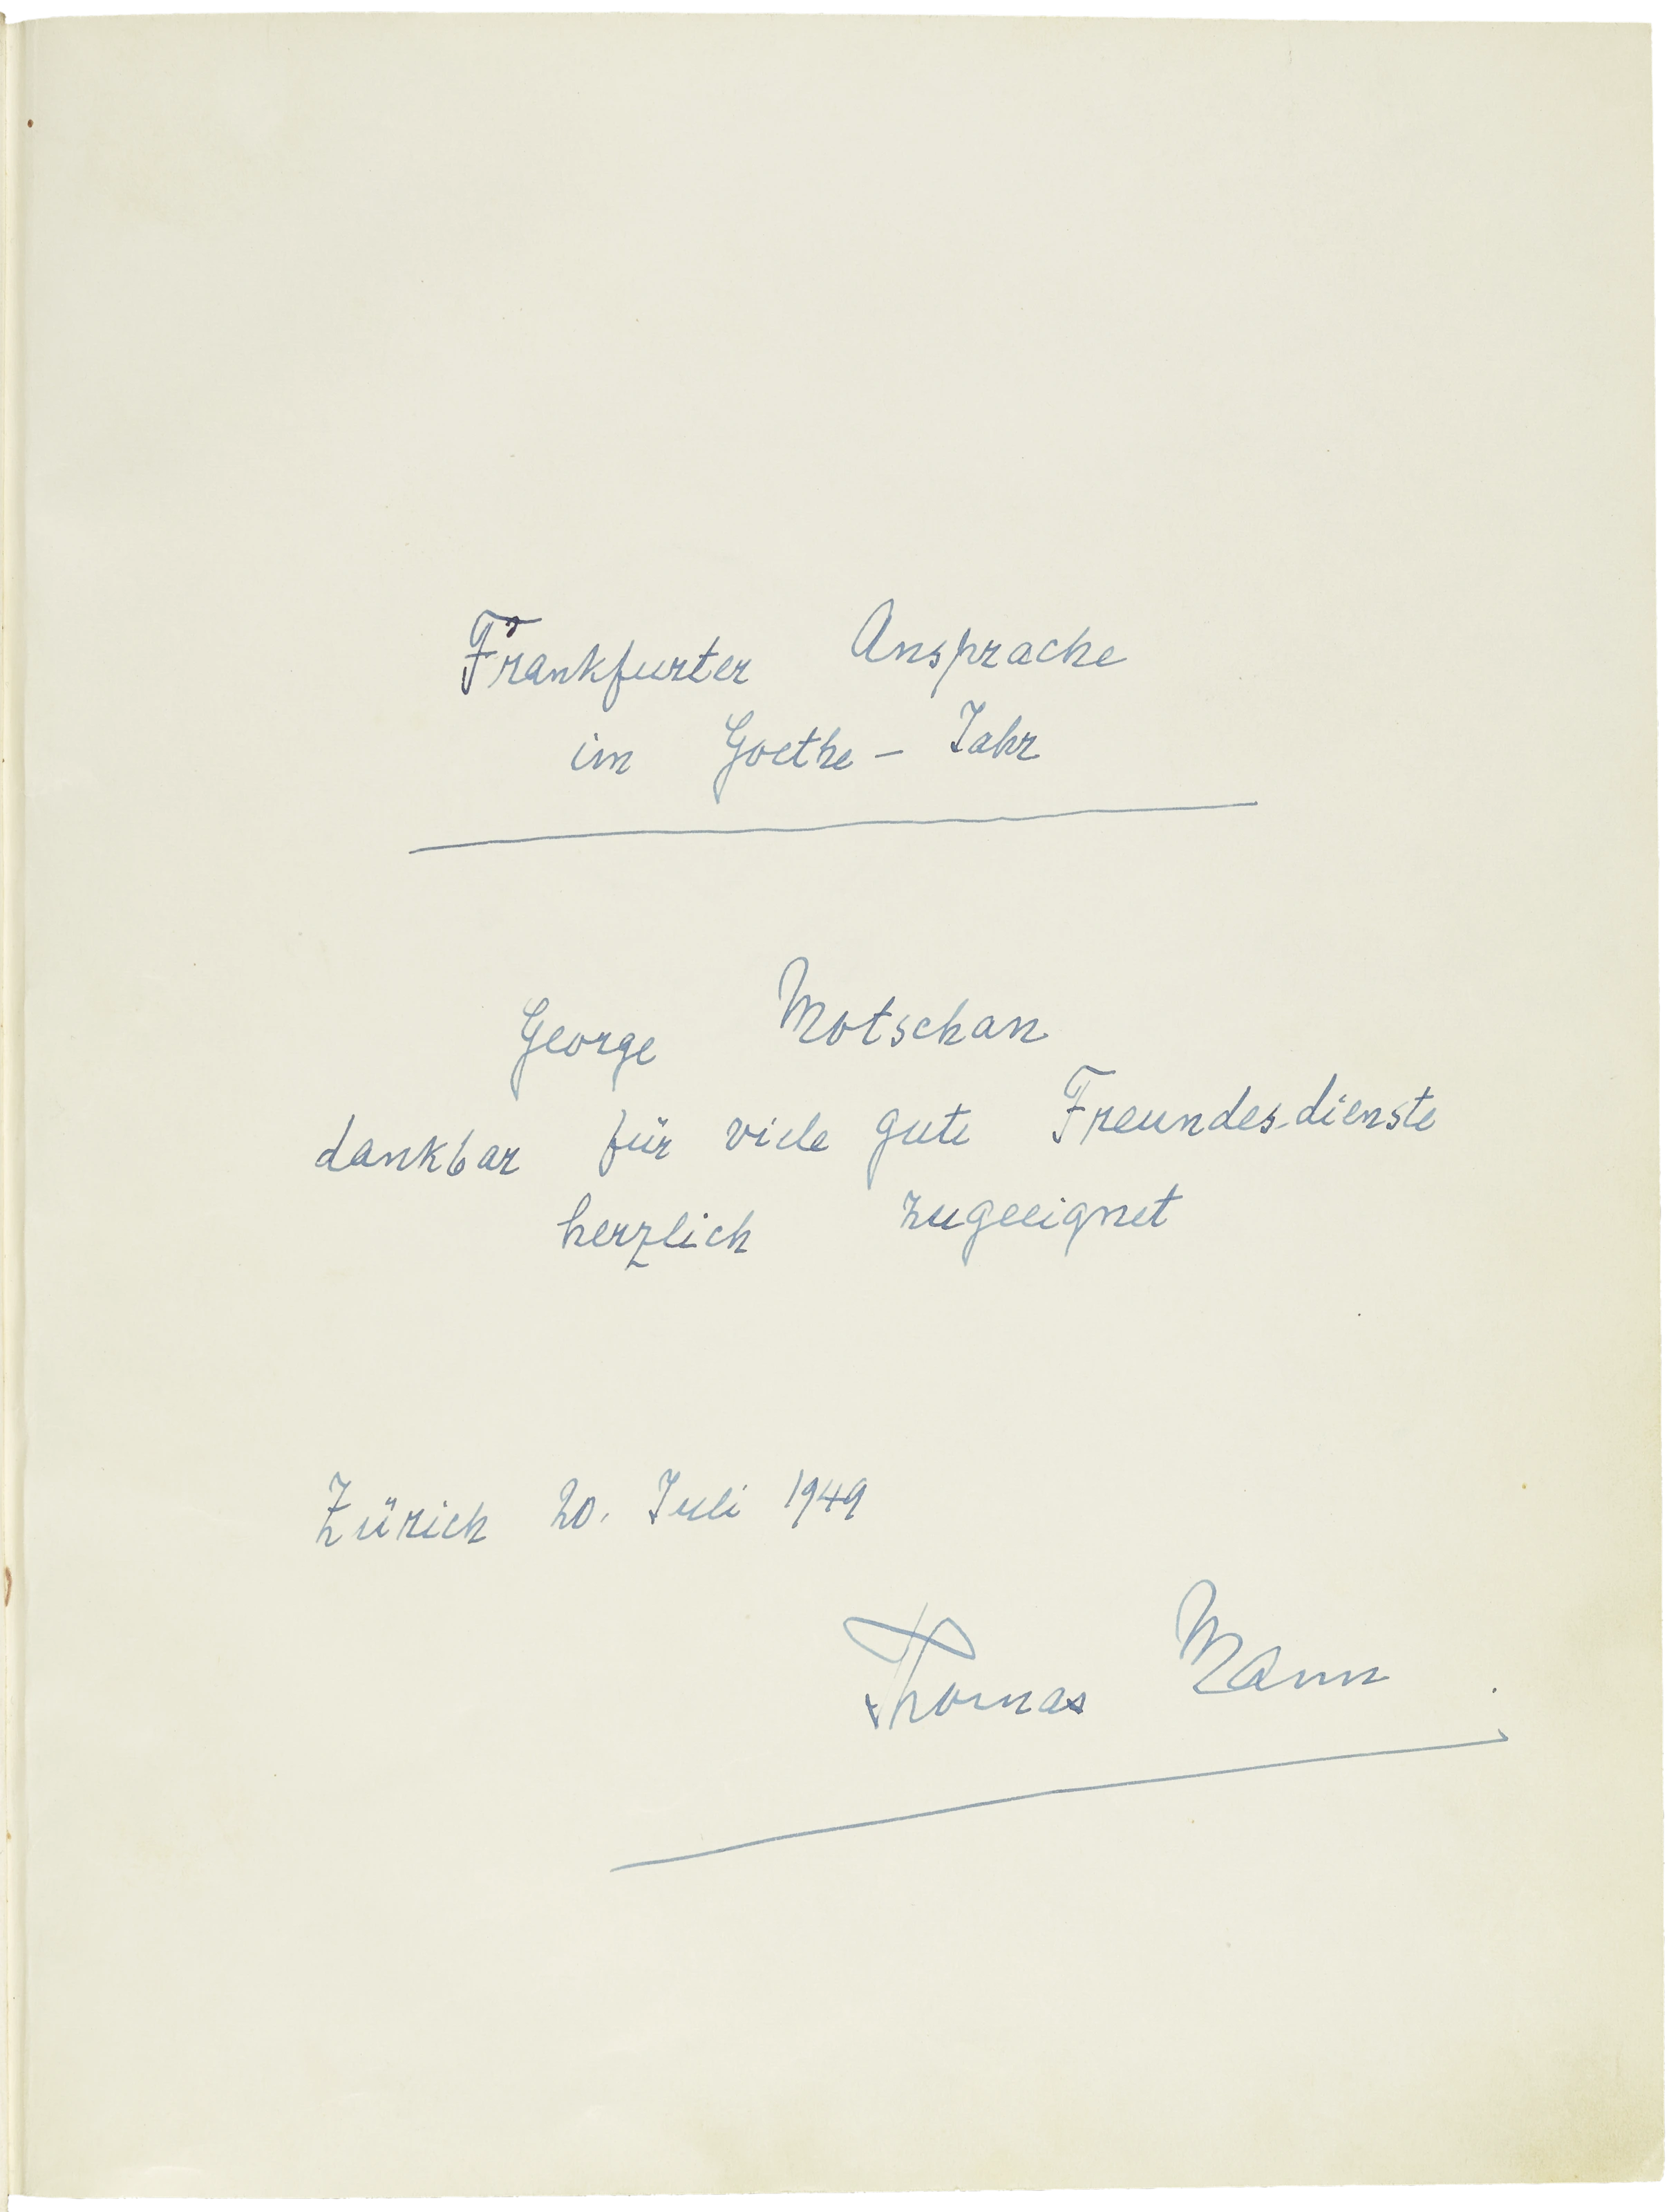 Frankfurter Ansprache
im Goethe - Jahr
George Motschan
dankbar für viele gute Freundesdienste
herzlich zugeeignet
Zürich 20. Juli 1949
Thomas Mann